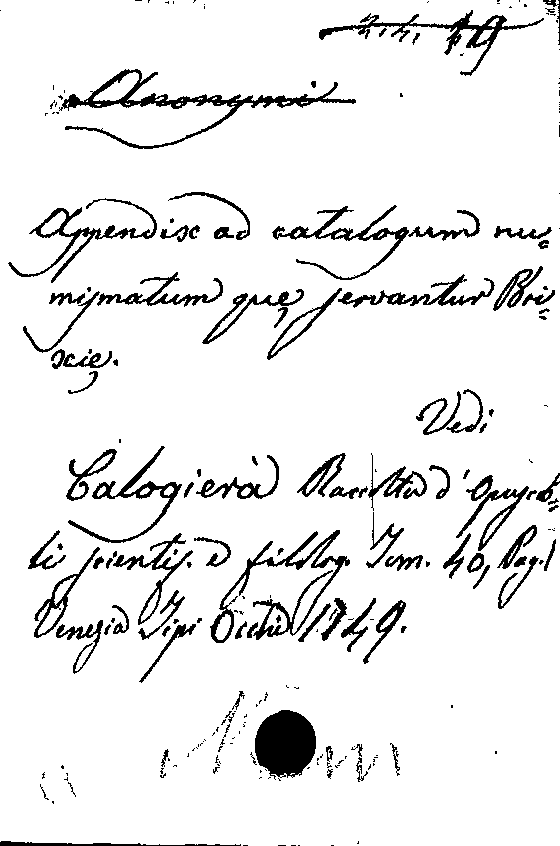 Anonymi
Appendix ad catalogum nu=
mismatum quę servantur Bri=
xię.
Vedi
Calogierà Raccolta d'Opusco=
li scientif. e filolog. Tom. 40, Pag. 1
Venezia Tipi Occhi 1749.
Num